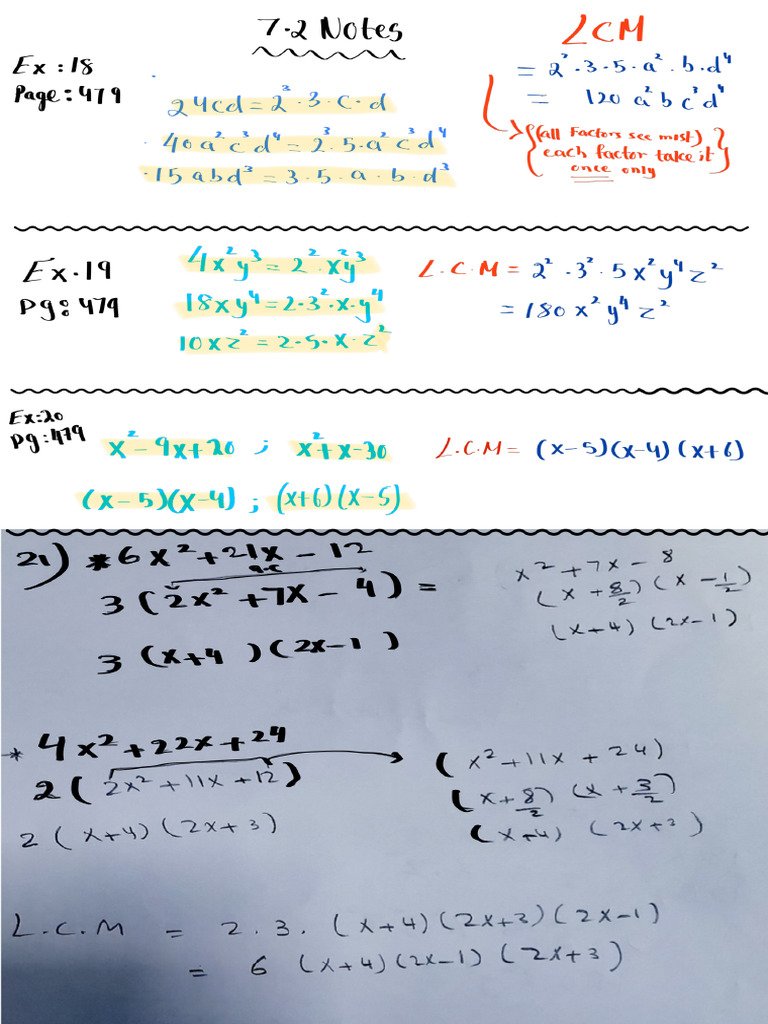 7.2 Notes
LCM
Ex : 18
Page : 479
24cd = 2³ · 3 · c · d
· 40a²c³d⁴ = 2³ · 5 · a² c³ d⁴
· 15abd³ = 3 · 5 · a · b · d³
= 2³ · 3 · 5 · a² · b · d⁴
= 120 a² b c³ d⁴
(all Factors see mist)
each factor take it
once only
Ex · 19
Pg : 479
4x²y³ = 2² · x²y³
18xy⁴ = 2 · 3² · x · y⁴
10xz² = 2 · 5 · x · z²
L.C.M = 2² · 3² · 5x²y⁴z²
= 180 x² y⁴ z²
Ex:20
Pg:479
x² - 9x + 20 ; x² + x - 30
(x - 5)(x - 4) ; (x + 6)(x - 5)
L.C.M = (x - 5)(x - 4)(x + 6)
21) * 6x² + 21x - 12
a·c
3 (2x² + 7x - 4) =
3 (x + 4)(2x - 1)
x² + 7x - 8
(x + 8/2)(x - 1/2)
(x + 4)(2x - 1)
* 4x² + 22x + 24
2 (2x² + 11x + 12)
2 (x + 4)(2x + 3)
(x² + 11x + 24)
(x + 8/2)(x + 3/2)
(x + 4)(2x + 3)
L.C.M = 2 . 3 . (x + 4)(2x + 3)(2x - 1)
= 6 (x + 4)(2x - 1)(2x + 3)